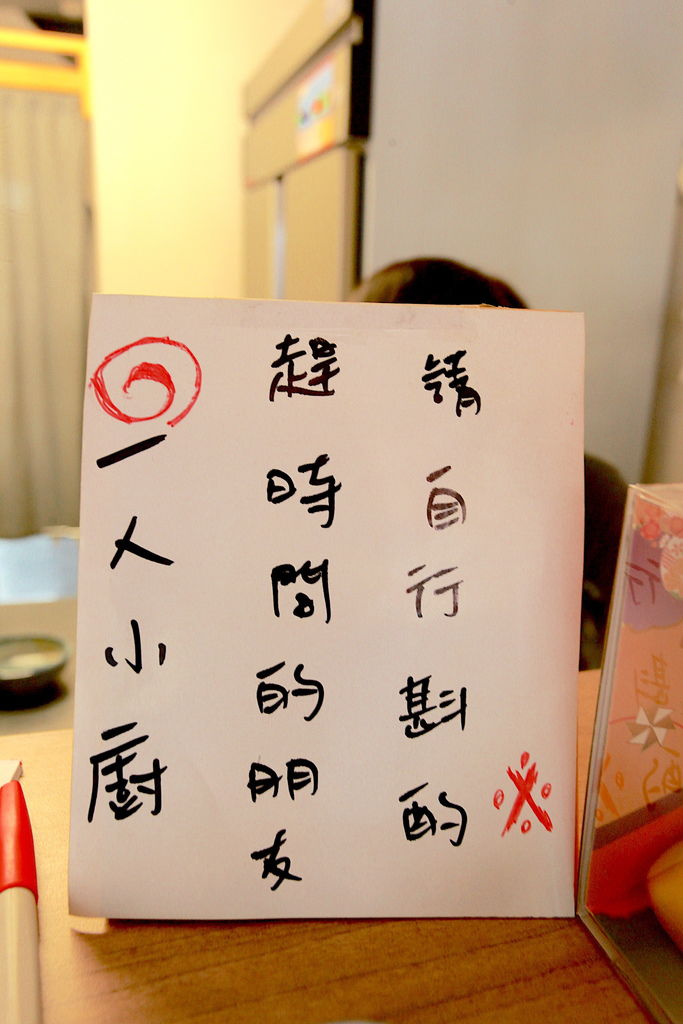 一人小廚
趕時間的朋友
請自行斟酌※